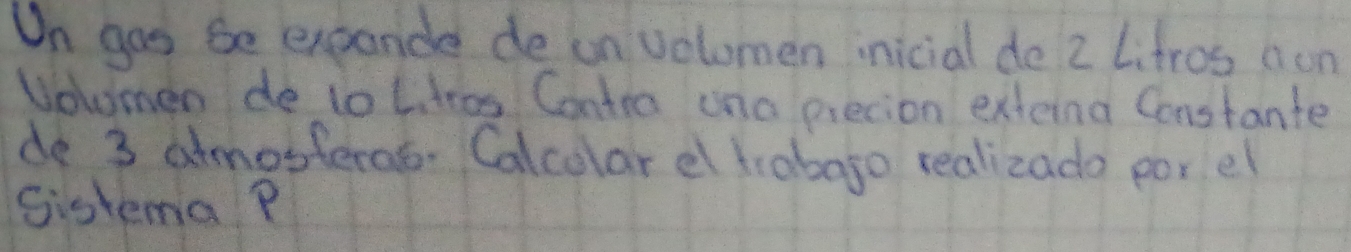 Un gas se expande de un volumen inicial de 2 Litros a un
Volumen de 10 Litros Contra una precion externa Constante
de 3 atmosferas. Calcular el trabajo realizado por el
Sistema P